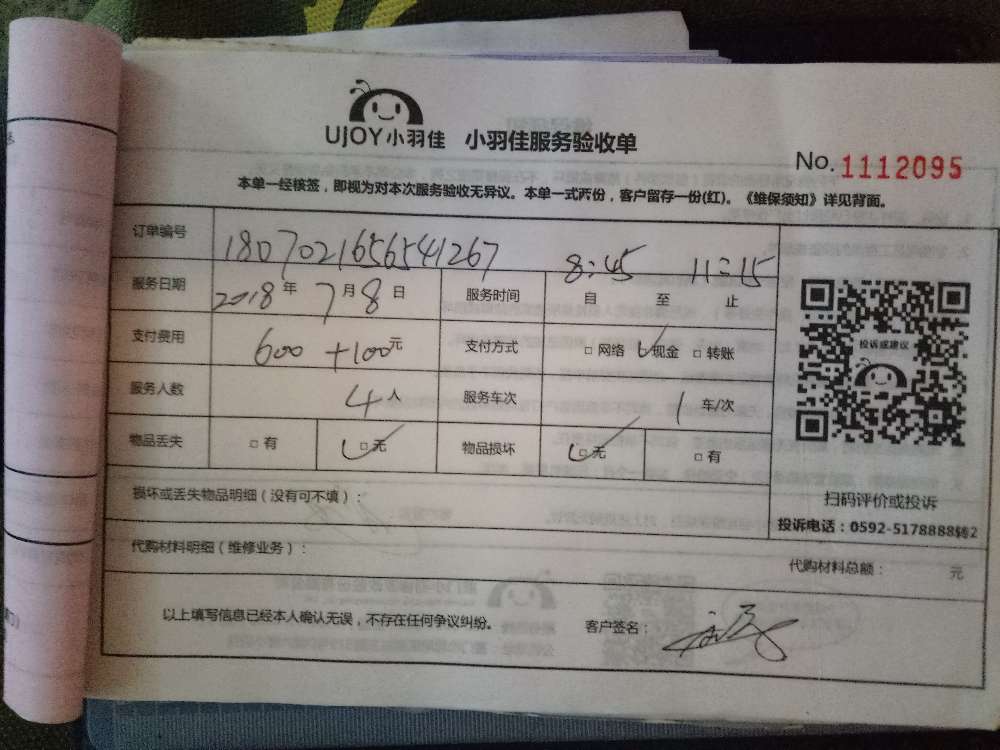 UJOY小羽佳 小羽佳服务验收单
No. 1112095
本单一经核签，即视为对本次服务验收无异议。本单一式两份，客户留存一份(红)。《维保须知》详见背面。
订单编号 1807021656541267
服务日期 2018年7月8日 服务时间 8:45 自 至 11:15 止
支付费用 600+100元 支付方式 □网络 ☑现金 □转账
服务人数 4人 服务车次 1车/次
物品丢失 □有 ☑无 物品损坏 ☑无 □有
投诉或建议
扫码评价或投诉
投诉电话：0592-5178888转2
损坏或丢失物品明细（没有可不填）：
代购材料明细（维修业务）：
代购材料总额： 元
以上填写信息已经本人确认无误，不存在任何争议纠纷。 客户签名：